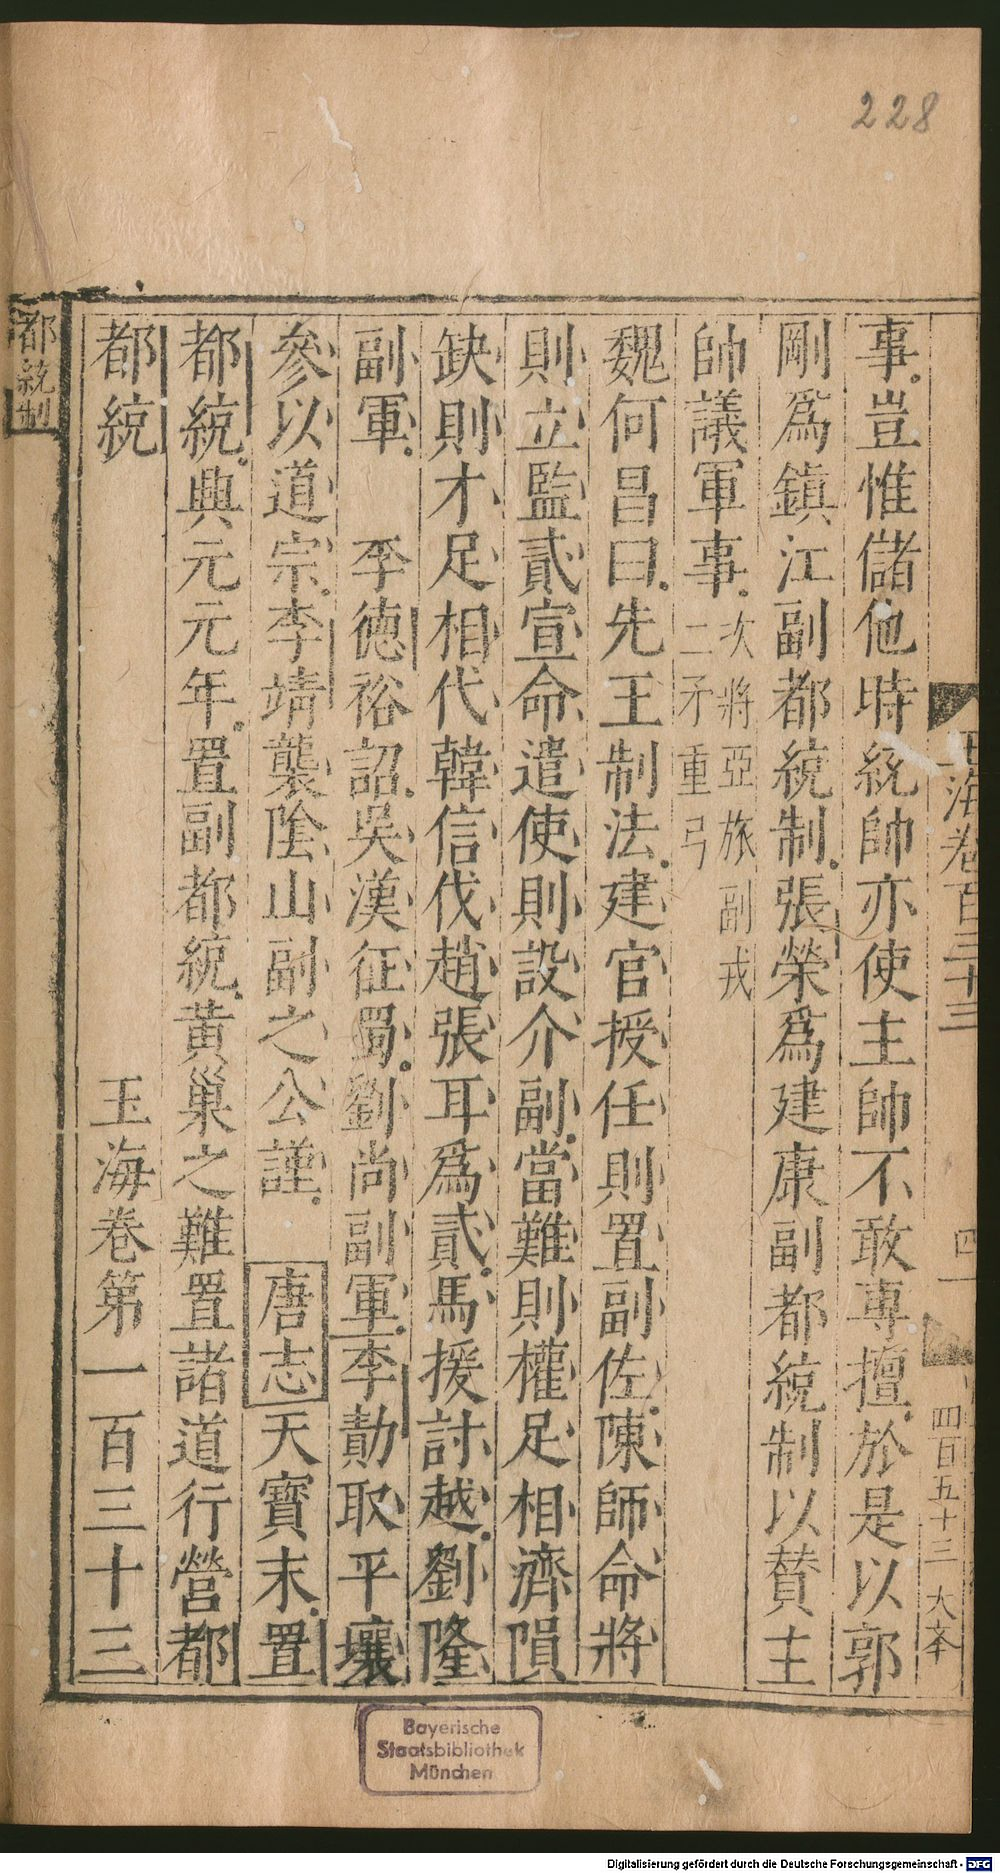 228
玉海卷百三十三
四一
四百五十三
事豈惟儲他時統帥亦使主帥不敢專擅於是以郭
剛爲鎮江副都統制張榮爲建康副都統制以賛主
帥議軍事次將亞旅副戎
二矛重弓
魏何昌曰先王制法建官授任則置副佐陳師命將
則立監貳宣命遣使則設介副當難則權足相濟隕
缺則才足相代韓信伐趙張耳爲貳馬援討越劉隆
副軍 李德裕詔吳漢征蜀劉尚副軍李勣取平壤
參以道宗李靖襲陰山副之公謹 唐志天寶末置
都統興元元年置副都統黃巢之難置諸道行營都
都統
玉海卷第一百三十三
都統制
Bayerische
Staatsbibliothek
München
Digitalisierung gefördert durch die Deutsche Forschungsgemeinschaft - DFG